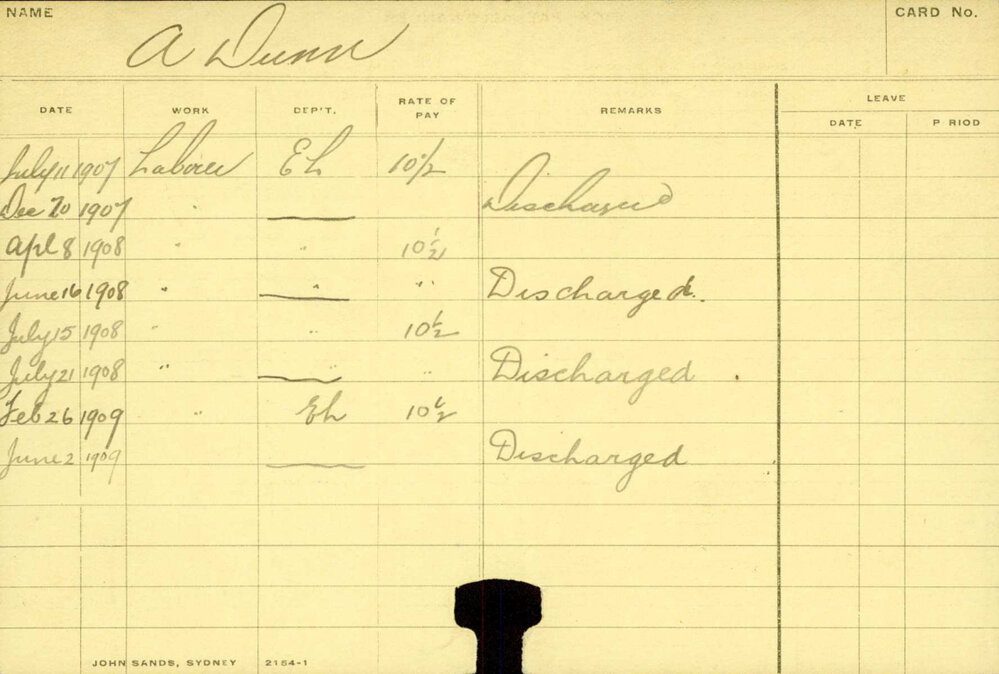 NAME A Dunn CARD No.
DATE WORK DEP'T. RATE OF PAY REMARKS LEAVE
DATE P RIOD
July 11 1907 Laborer Eh 10 1/2
Dec 20 1907 " Discharged
Apl 8 1908 " " 10 1/2
June 16 1908 " " " Discharged.
July 15 1908 " " 10 1/2
July 21 1908 " " " Discharged .
Feb 26 1909 " Eh 10 1/2
June 2 1909 Discharged
JOHN SANDS, SYDNEY 2154-1